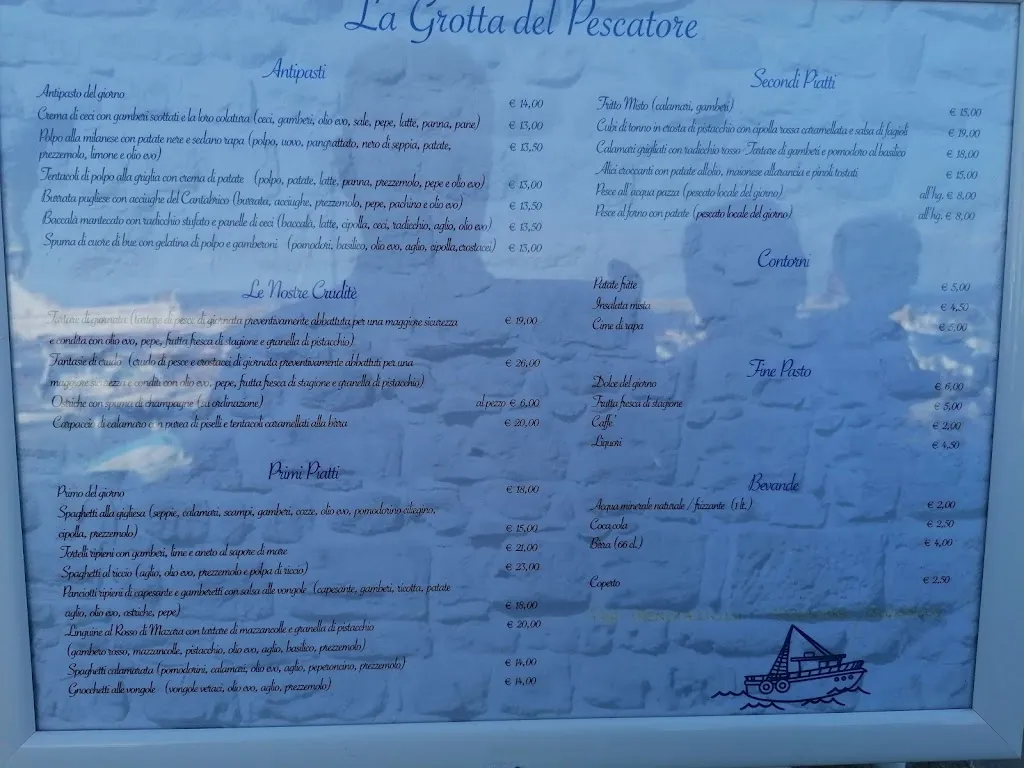 La Grotta del Pescatore
Antipasti
Antipasto del giorno € 14,00
Crema di ceci con gamberi scottati e la loro colatura (ceci, gamberi, olio evo, sale, pepe, latte, panna, pane) € 13,00
Polpo alla milanese con patate nere e sedano rapa (polpo, uovo, pangrattato, nero di seppia, patate, € 13,50
prezzemolo, limone e olio evo)
Tentacoli di polpo alla griglia con crema di patate (polpo, patate, latte, panna, prezzemolo, pepe e olio evo) € 13,00
Burrata pugliese con acciughe del Cantabrico (burrata, acciughe, prezzemolo, pepe, pachino e olio evo) € 13,50
Baccalà mantecato con radicchio stufato e panelle di ceci (baccalà, latte, cipolla, ceci, radicchio, aglio, olio evo) € 13,50
Spuma di cuore di bue con gelatina di polpo e gamberoni (pomodori, basilico, olio evo, aglio, cipolla,crostacei) € 13,00
Le Nostre Cruditè
Tartare di giornata (tartare di pesce di giornata preventivamente abbattuta per una maggiore sicurezza € 19,00
e condita con olio evo, pepe, frutta fresca di stagione e granella di pistacchio)
Fantasie di crudo (crudo di pesce e crostacei di giornata preventivamente abbattuti per una € 26,00
maggiore sicurezza e condita con olio evo, pepe, frutta fresca di stagione e granella di pistacchio)
Ostriche con spuma di champagne (su ordinazione) al pezzo € 6,00
Carpaccio di calamaro con purea di piselli e tentacoli caramellati alla birra € 20,00
Primi Piatti
Primo del giorno € 18,00
Spaghetti alla gigliesa (seppie, calamari, scampi, gamberi, cozze, olio evo, pomodorino ciliegino,
cipolla, prezzemolo) € 15,00
Tortelli ripieni con gamberi, lime e aneto al sapore di mare € 21,00
Spaghetti al riccio (aglio, olio evo, prezzemolo e polpa di riccio) € 23,00
Panciotti ripieni di capesante e gamberetti con salsa alle vongole (capesante, gamberi, ricotta, patate
aglio, olio evo, ostriche, pepe) € 18,00
Linguine al Rosso di Mazara con tartare di mazzancolle e granella di pistacchio € 20,00
(gambero rosso, mazzancolle, pistacchio, olio evo, aglio, basilico, prezzemolo)
Spaghetti calamarata (pomodorini, calamari, olio evo, aglio, peperoncino, prezzemolo) € 14,00
Gnocchetti alle vongole (vongole veraci, olio evo, aglio, prezzemolo) € 14,00
Secondi Piatti
Fritto Misto (calamari, gamberi) € 15,00
Cubi di tonno in crosta di pistacchio con cipolla rossa caramellata e salsa di fagioli € 19,00
Calamari grigliati con radicchio rosso Tartare di gamberi e pomodoro al basilico € 18,00
Alici croccanti con patate all'olio, maionese all'arancia e pinoli tostati € 15,00
Pesce all'acqua pazza (pescato locale del giorno) all'hg. € 8,00
Pesce al forno con patate (pescato locale del giorno) all'hg. € 8,00
Contorni
Patate fritte € 5,00
Insalata mista € 4,50
Cime di rapa € 5,00
Fine Pasto
Dolce del giorno € 6,00
Frutta fresca di stagione € 5,00
Caffe' € 2,00
Liquori € 4,50
Bevande
Acqua minerale naturale / frizzante (1 lt.) € 2,00
Coca,cola € 2,50
Birra (66 cl.) € 4,00
Coperto € 2,50